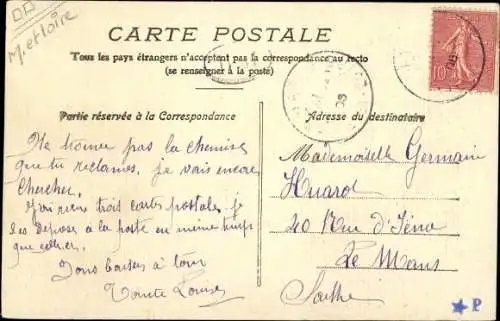 M. et Loire
CARTE POSTALE
Tous les pays étrangers n'acceptent pas la correspondance au recto
(se renseigner à la poste)
10
Partie réservée à la Correspondance
Adresse du destinataire
Ne trouve pas la chemise
que tu réclames, je vais encore
chercher.
J'ai reçu trois cartes postale je
les dépose à la poste en même temps
que celle-ci.
Bons baisers à tous
Tante Louise
Mademoiselle Germaine
Huard
20 Rue d'Iéna
Le Mans
Sarthe
P